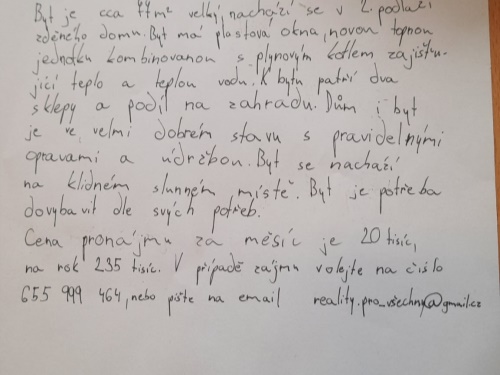 Byt je cca 77m² velký, nachází se v 2. podlaží
zděného domu. Byt má plastová okna, novou topnou
jednotku kombinovanou s plynovým kotlem zajištu-
jící teplo a teplou vodu. K bytu patří dva
sklepy a podíl na zahradu. Dům i byt
je ve velmi dobrém stavu s pravidelnými
opravami a údržbou. Byt se nachází
na klidném slunném místě. Byt je potřeba
dovybavit dle svých potřeb.
Cena pronájmu za měsíc je 20 tisíc,
na rok 235 tisíc. V případě zájmu volejte na číslo
655 999 464, nebo pište na email reality.pro_všechny@gmail.cz